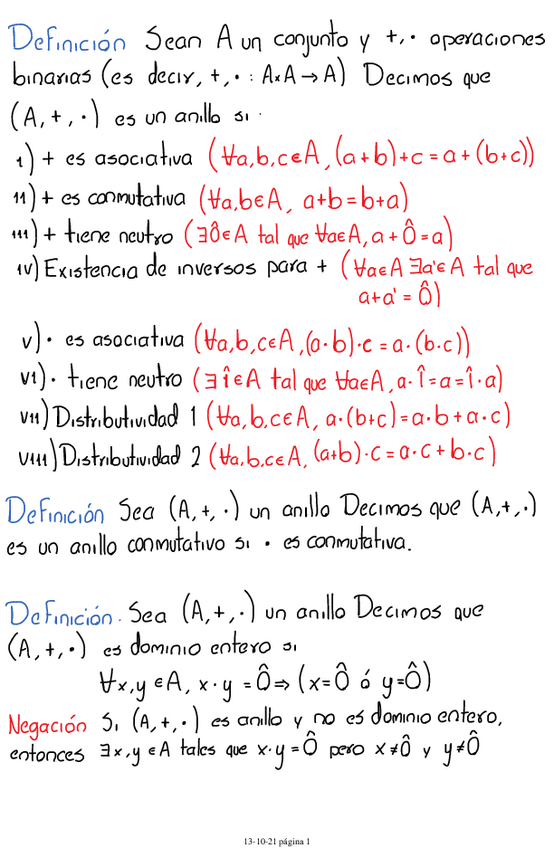 Definición Sean A un conjunto y +,· operaciones
binarias (es decir, +,· : A×A → A) Decimos que
(A, +, ·) es un anillo si ·
i) + es asociativa (∀a,b,c∈A, (a+b)+c = a+(b+c))
ii) + es conmutativa (∀a,b∈A, a+b=b+a)
iii) + tiene neutro (∃Ô∈A tal que ∀a∈A, a+Ô=a)
iv) Existencia de inversos para + (∀a∈A ∃a'∈A tal que
a+a' = Ô)
v) · es asociativa (∀a,b,c∈A, (a·b)·c = a·(b·c))
vi) · tiene neutro (∃î∈A tal que ∀a∈A, a·î=a=î·a)
vii) Distributividad 1 (∀a,b,c∈A, a·(b+c)=a·b+a·c)
viii) Distributividad 2 (∀a,b,c∈A, (a+b)·c=a·c+b·c)
Definición Sea (A, +, ·) un anillo Decimos que (A,+,·)
es un anillo conmutativo si · es conmutativa.
Definición. Sea (A,+,·) un anillo Decimos que
(A,+,·) es dominio entero si
∀x,y∈A, x·y = Ô ⇒ (x=Ô ó y=Ô)
Negación Si (A,+,·) es anillo y no es dominio entero,
entonces ∃x,y∈A tales que x·y=Ô pero x≠Ô y y≠Ô
13-10-21 página 1